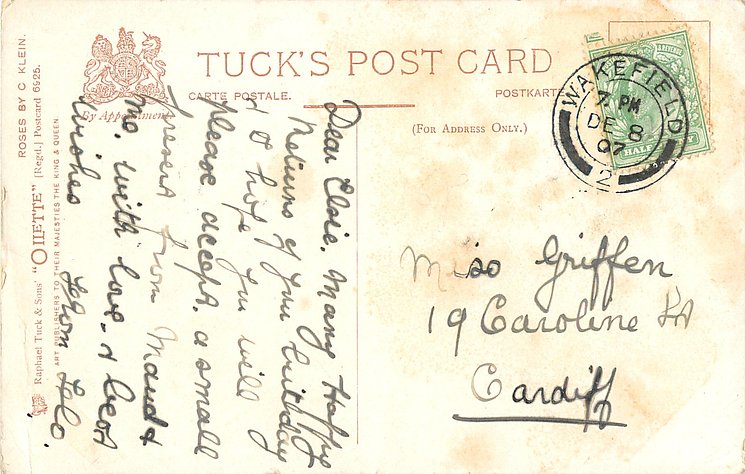 TUCK'S POST CARD
CARTE POSTALE.
POSTKARTE
By Appointment
(FOR ADDRESS ONLY.)
WAKEFIELD
7 PM
DE 8
07
2
& REVENUE
HALF
Miss Griffen
19 Caroline St
Cardiff
Dear Elsie, Many Happy
Returns of your birthday
& I hope you will
please accept a small
present from Maud &
Me, with love & best
Wishes
ROSES BY C KLEIN.
Raphael Tuck & Sons' "OILETTE" [Regd.] Postcard 6925.
ART PUBLISHERS TO THEIR MAJESTIES THE KING & QUEEN